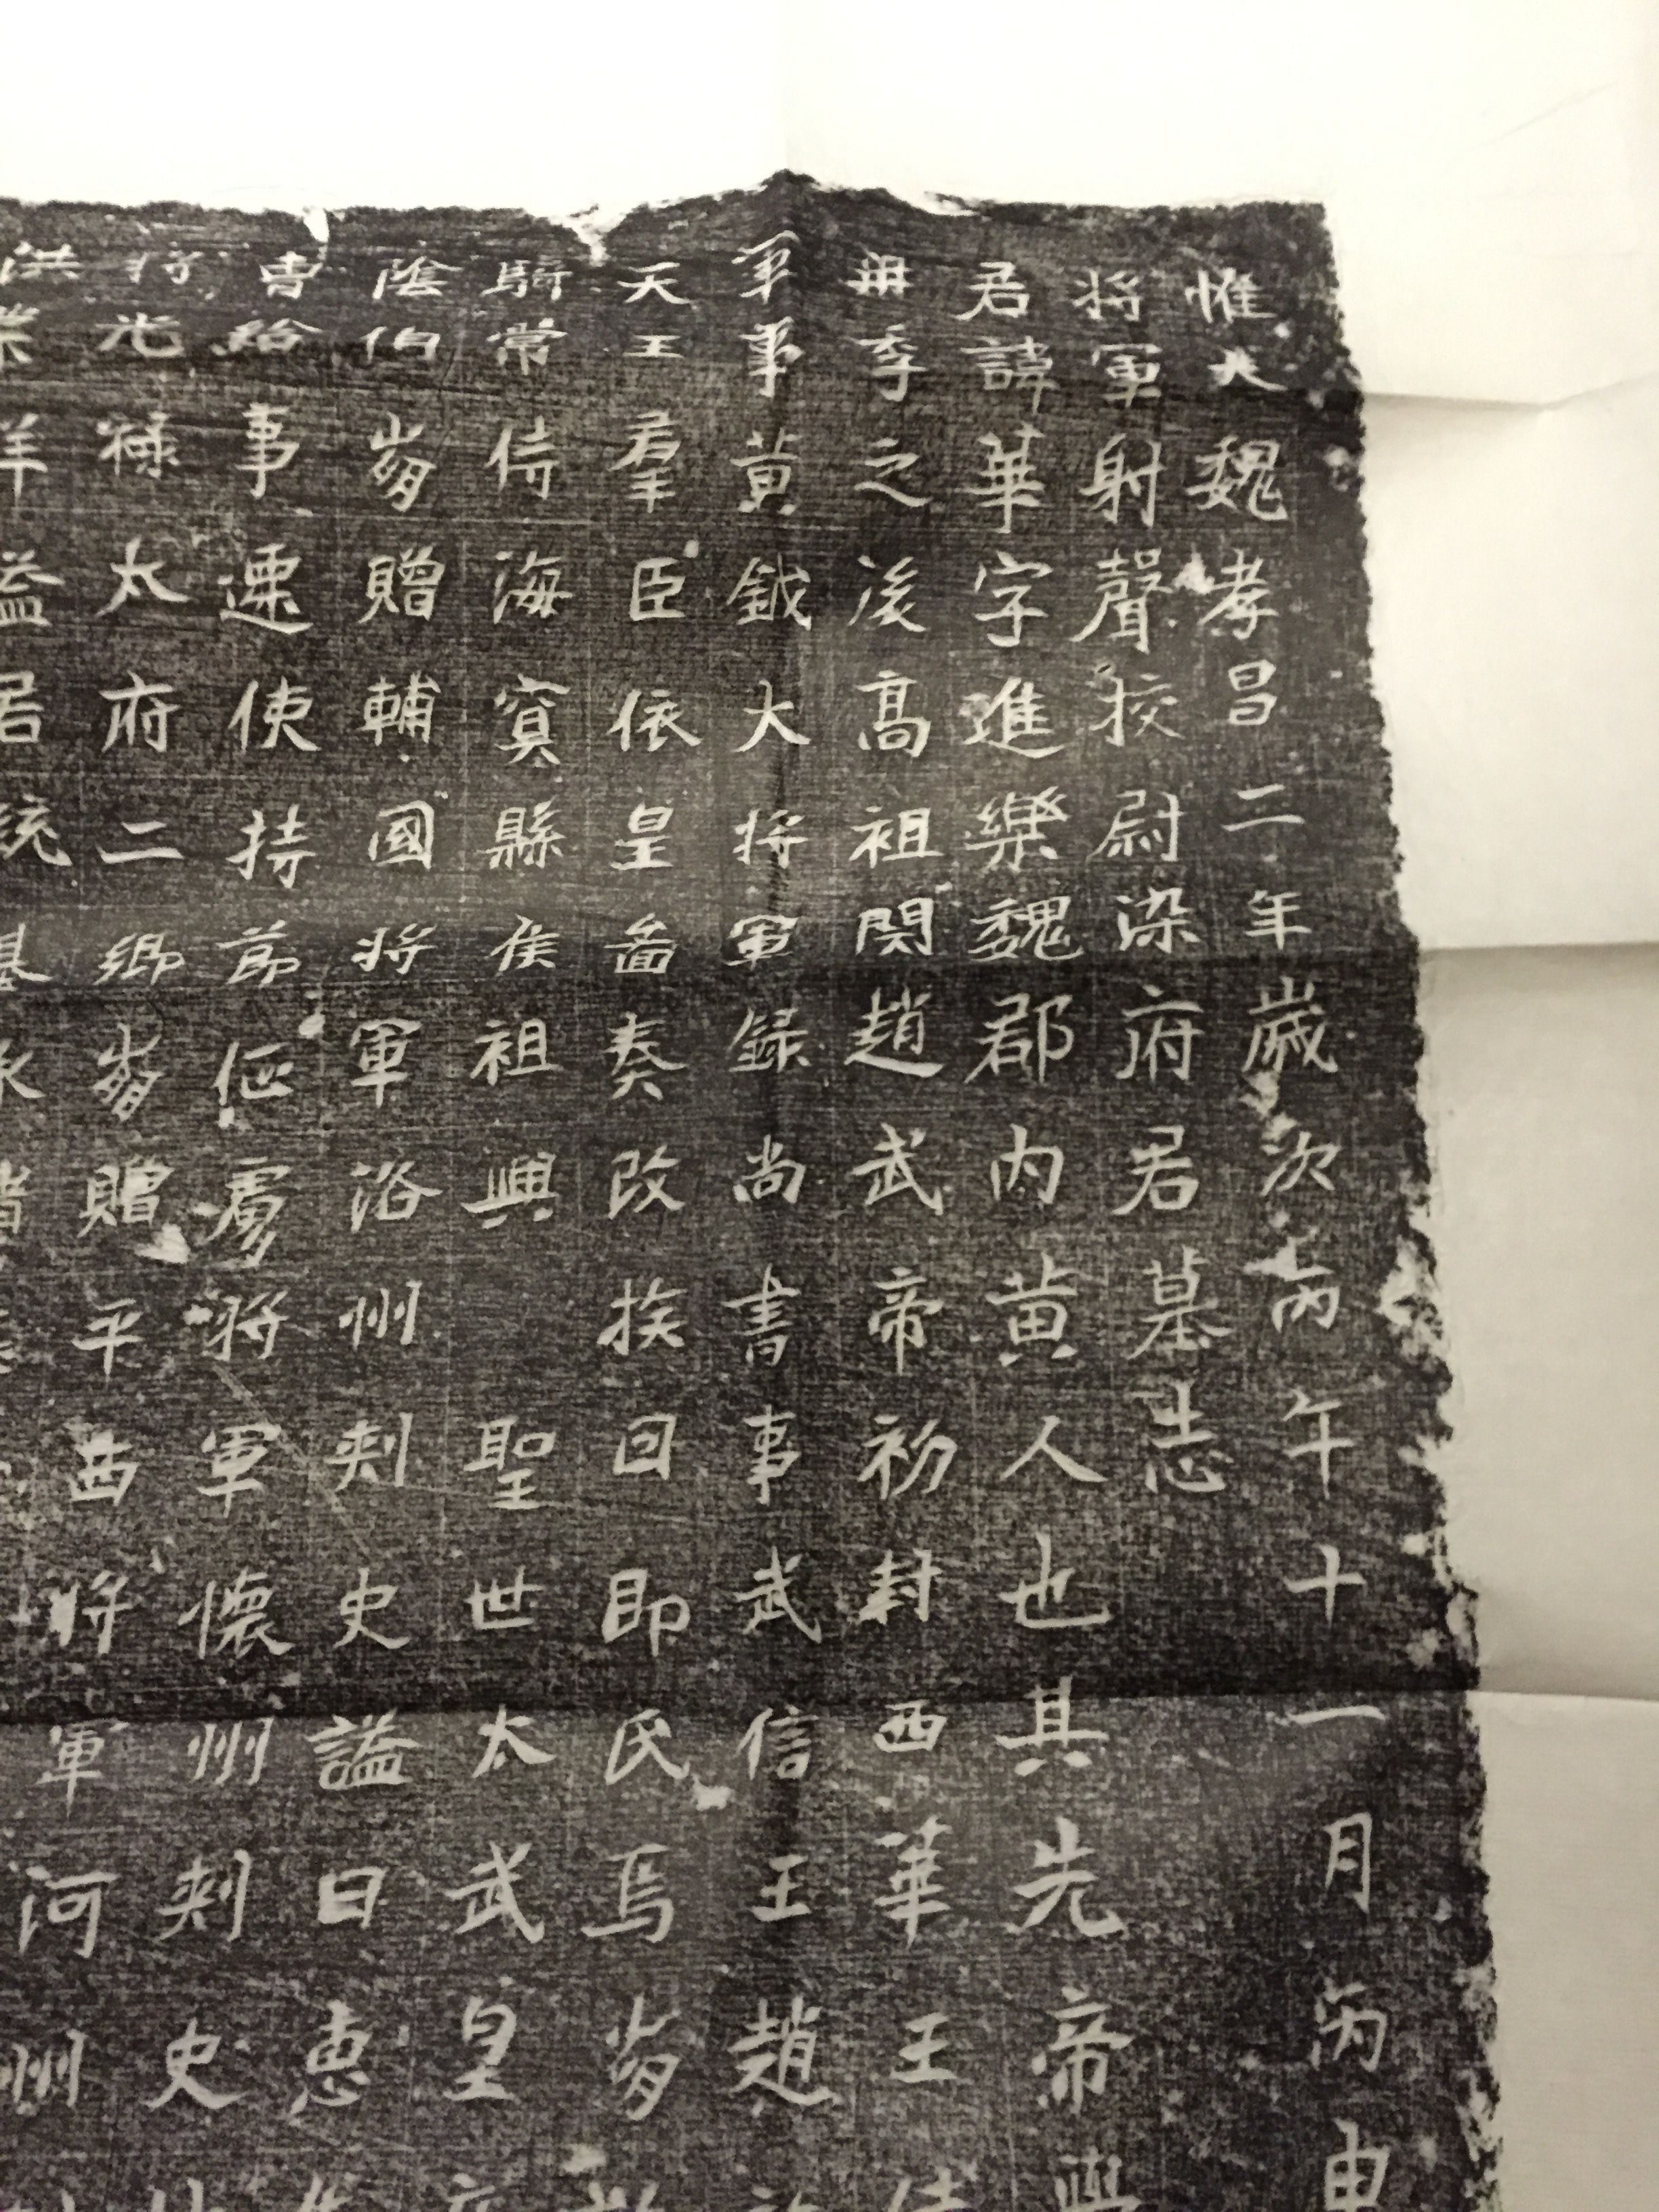 惟大魏孝昌二年歲次丙午十一月丙申
将軍射聲校尉染府君墓志
君諱華字進樂魏郡内黄人也其先帝嚳
冊季之後高祖閔趙武帝初封西華王侍
軍事黄鉞大将軍録尚書事武信王趙
天王羣臣依皇啚奏改族囙即氏焉
騎常侍海冥縣侯祖興聖世太武皇
陰伯贈輔國将軍洛州刾史謚曰恵
曺給事速使持節征虜将軍懷州刾史
将光禄太府二卿贈平西将軍河州
洪